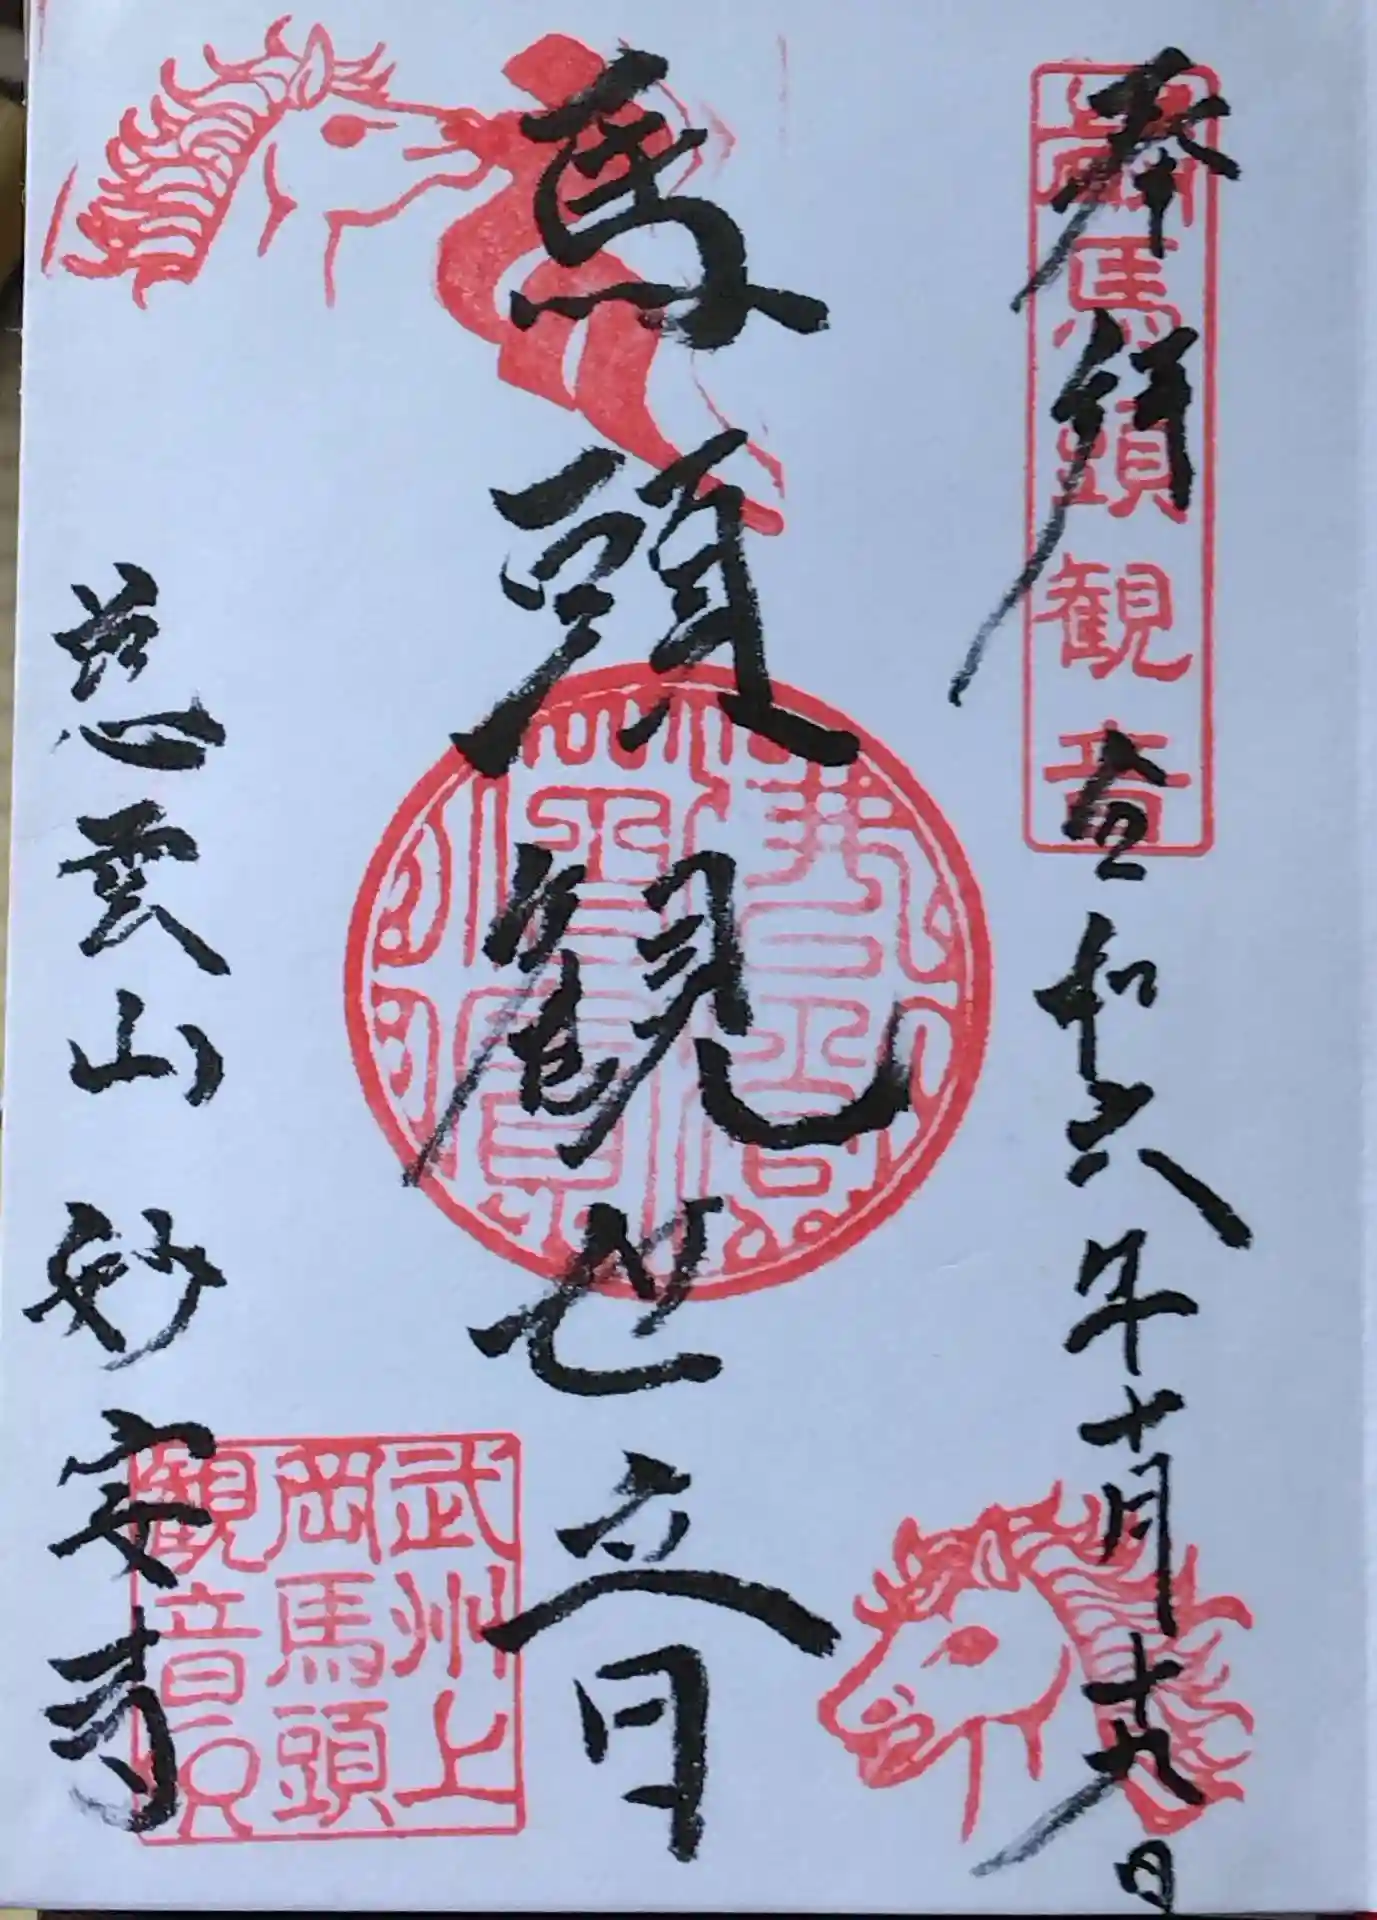 奉拝
令和六年十月十九日
馬頭観世音
慈雲山 妙安寺
馬頭観音
武州上
岡馬頭
観音印